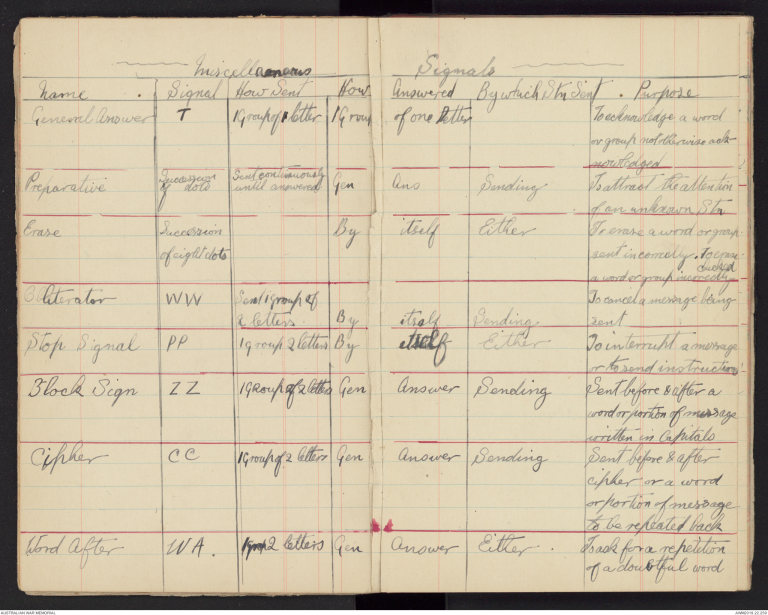 Miscellaneous Signals
Name. Signal How Sent How Answered By which Stn Sent. Purpose
General Answer T 1 Group of 1 letter 1 Group of one letter To acknowledge a word
or group not otherwise ack-
nowledged
Preparative Succession of dots Sent continuously until answered Gen Ans Sending To attract the attention
of an unknown Stn
Erase Succession By itself Either To erase a word or group
of eight dots sent incorrectly. To erase
a word or group incorrectly
Obliterator WW Sent 1 Group of To cancel a message being
2 letters. By itself Sending sent
Stop Signal PP 1 group 2 letters By itself Either To interrupt a message
or to send instructions
Block Sign ZZ 1 Group of 2 letters Gen Answer Sending Sent before & after a
word or portion of message
written in Capitals
Cipher CC 1 Group of 2 letters Gen Answer Sending Sent before & after
cipher or a word
or portion of message
to be repeated back
Word After WA. 2 letters Gen Answer Either. To ask for a repetition
of a doubtful word
AUSTRALIAN WAR MEMORIAL